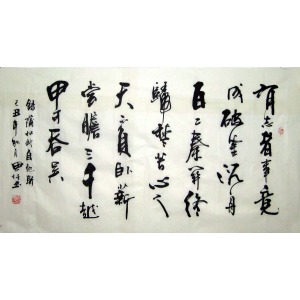 有志者事竟
成破釜沉舟
百二秦关终
歸楚苦心人
天不負卧薪
嘗膽三千越
甲可吞吴
錄蒲松齡自勉聯
己丑年